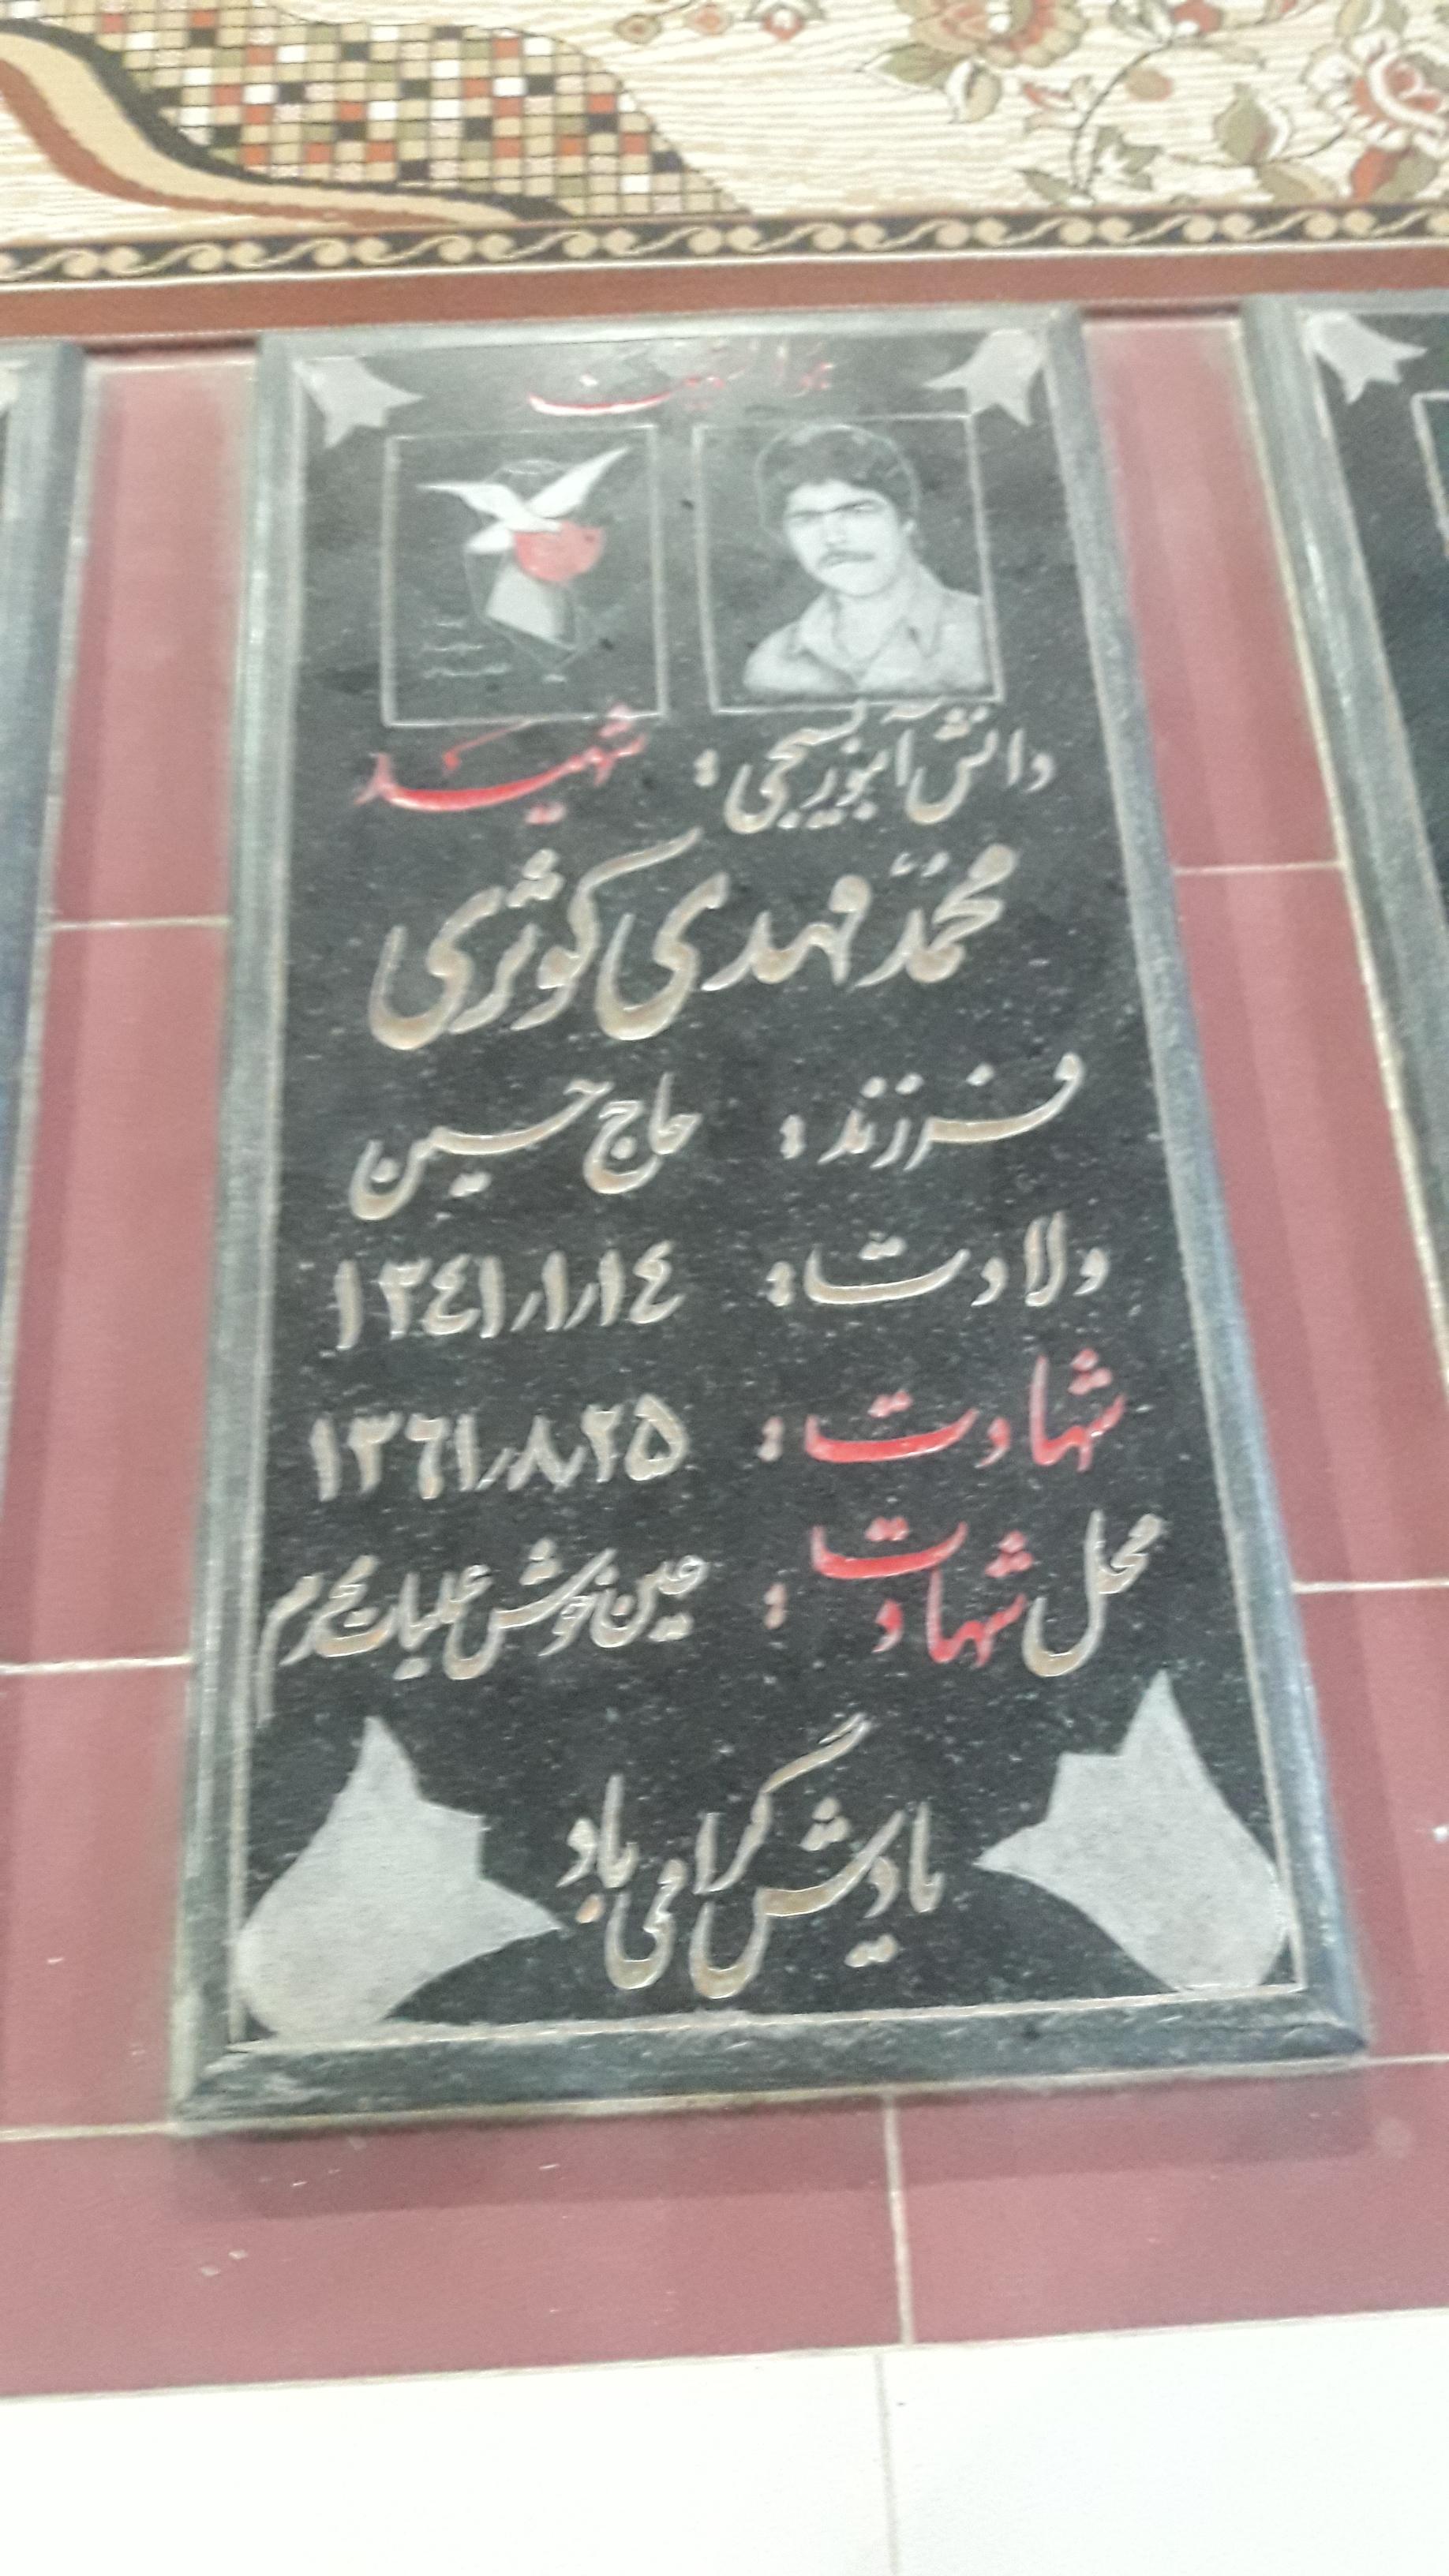 هوالشهید
دانش آموز بسیجی : شهید
محمد مهدی کوثری
فرزند : حاج حسین
ولادت : ۱۳٤۱/۱/۱٤
شهادت : ۱۳٦۱/۸/۲۵
محل شهادت : عین خوش عملیات محرم
یادش گرامی باد